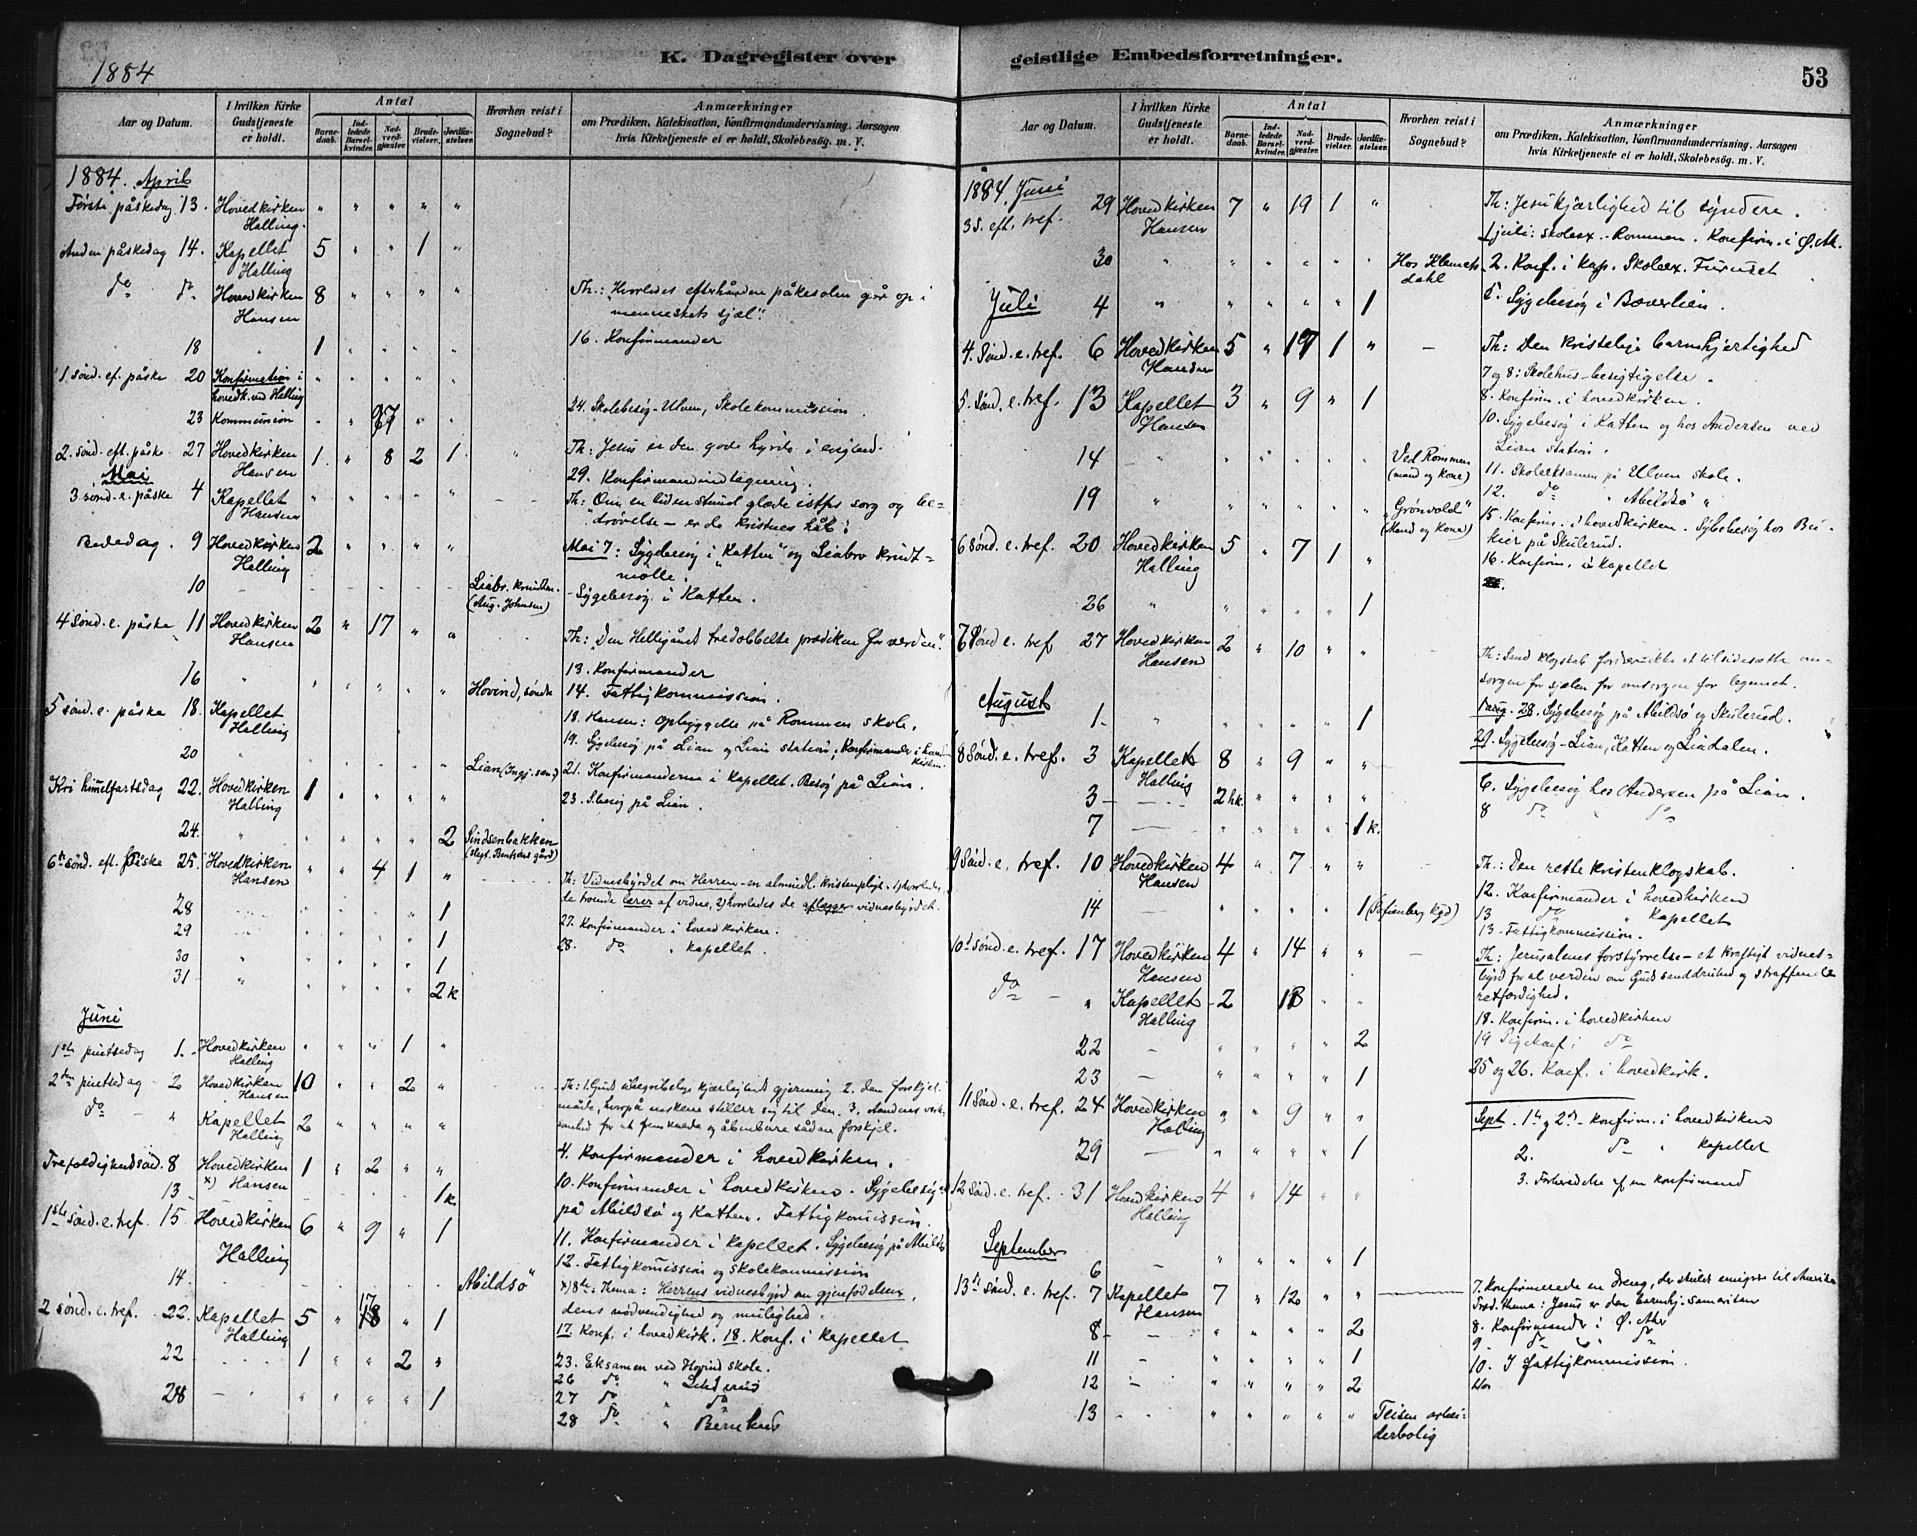 1884
K. Dagregister over
Aar og Datum.
I hvilken Kirke Gudstjeneste er holdt.
Antal
Barnedaab.
Indledede Barselkvinder.
Nadverdgjæster.
Brudevielser.
Jordfæstelser.
Hvorhen reist i Sognebud?
Anmærkninger
om Prædiken, Katekisation, Konfirmandundervisning, Aarsagen
hvis Kirketjeneste ei er holdt, Skolebesøg. m. V.
1884. April
Første påskedag 13. Hovedkirken " " " " "
Halling.
Anden påskedag 14. Kapellet 5 " " 1 "
Halling
do do Hovedkirken 8 " " " " Th: Hvorledes påskesolen går op i
Hansen menneskets sjæl".
18 " 1 " " " " 16. Konfirmander
1 sønd. ef. påske 20 Konfirmation i " " " " "
hovedk. ved Halling
23 Kommunion 24. Skolebesøg - Ulven, Skolekommission.
2. sønd. eft. påske 27 Hovedkirken 1 " 8 2 1 Th: Jesus er den gode hyrde i
Hansen 29. Konfirmandindtegning.
Mai
3 sønd. e. påske 4 Kapellet " " " " " Th: Om en liden stund glæde istfr sorg og be-
Hansen drøvelse - er de kristnes håb.
Bededag. 9 Hovedkirken 2 " " " " Mai 7: Sygebesøg i "Katten" og Liabro krudt-
Halling mølle.
10 (Aug. Johnsen) - Sygebesøg i Katten.
4 Sønd. e. påske 11 Hovedkirken 2 " 17 " " Th: "Den Helligånds tredobbelte prædiken for verden".
Hansen 13. Konfirmander
16 " Hovind, søndre 14. Fattigkommission.
5 sønd. e. påske 18. Kapellet 18. Hansen: opbyggelse på Rommen skole.
Halling 19. Sygebesøg på Lian og Lian station; Konfirmander i hoved-
kirken
20 Lian 21. Konfirmanderne i kapellet. Besøg på Lian.
Kri himelfartsdag 22. Hovedkirken 1 " " " " 23. S.besøg på Lian.
Halling
24. " " " " " 2 Sindsenbakken
6te sønd. eft. Påske 25. Hovedkirken " " 4 1 "
Hansen Th: Vidnesbyrdet om Herren - en almindl. kristenpligt. 1) hvorledes
28 1 de troende lærer af vidne, 2) hvorledes de aflægger vidnesbyrdet.
29 1 27. Konfirmander i hovedkirken.
30 " 1 28. do " kapellet.
31 - " 2 k
Juni
1ste pintsedag 1. Hovedkirken " " " 1 "
Halling
2den pintsedag - 2 Hovedkirken 10 " " 2 " Th: 1. Guds ubegribelige kjærligheds gjerning 2. Den forskjel.
Hansen måde, hvorpå stiller sig til den. 3. Aandens virk-
do - " Kapellet 2 " " " " somhed for at og åbenbare sådan forskjel.
Halling
Trefoldighedssønd. 8 Hovedkirken 1 " 2 " " 4. Konfirmander i hovedkirken.
x) Hansen
13 - 1 k 10. Konfirmander i hovedkirken. Sygebesøg
1ste sønd. e. tref. 15. Hovedkirken 6 " 9 " 1 på Abildsø og Katten. Fattigkomission.
Halling 11. Konfirmander i kapellet. Sygebesøg på Abildsø
14 Abildsø 12. Fattigkomission og skolekommission
2 sønd. e. tref. 22. Kapellet 5 " " 1 x) 8de: Thema: Herrens vidnesbyrd om gjenfødelsen,
Halling dens nødvendighed og mulighed.
22 1 " " 2 " 17. Konf. i hovedkirk. 18. Konf. i kapellet
28 - " " " " " 1 23. Eksamen ved Hovind skole.
26 do "
27 do " do
28 do "

geistlige Embedsforretninger.
53
Aar og Datum.
I hvilken Kirke Gudstjeneste er holdt.
Antal
Barnedaab.
Indledede Barselkvinder.
Nadverdgjæster.
Brudevielser.
Jordfæstelser.
Hvorhen reist i Sognebud?
Anmærkninger
om Prædiken, Katekisation, Konfirmandundervisning, Aarsagen
hvis Kirketjeneste ei er holdt, Skolebesøg. m. V.
1884. Juni
3 S. eft. tref. 29 Hovedkirken 7 " 19 1 " Th: Jesu kjærlighed til syndere.
Hansen 1 juli: skoleex. - Rommen. Konfirm. i Ø. Ak.
30 " Hos Klemets- 2. Konf. i kap. Skoleex. Furuset
dahl
Juli 4 " 1 5. Sygebesøg i Bæverlien.
4. Sønd. e. tref. 6 Hovedkirken 5 " 1 " Th: Den kristelige barmhjertighed
Hansen 7 og 8: Skolehus-besigtigelse.
5. Sønd. e. tref. 13 Kapellet 3 " 9 " 1 8. Konfirm. i hovedkirken.
Hansen 10. Sygebesøg i Katten og hos Andersen ved
Lian station.
14 Ved Rommen 11. Skoleeksamen på Ulven skole.
(mand og kone) 12. do " Abildsø "
19 "Grønvold" 15. Konfirm. i hovedkirken. Sygebesøg hos
(Mand og kone) på Skulerud.
6 Sønd. e. tref. 20 Hovedkirken 5 " 7 1 " 16. Konfirm. i kapellet
Halling
26 " 1
7 Sønd e. tref 27 Hovedkirken 2 " 10 " " Th: Sand klogskab fordrer ikke at tilsidesætte om-
Hansen sorgen for sjælen for omsorgen for legemet.
August
1 - " 1 28. Sygebesøg på Abildsø og Skulerud.
8 Sønd. e. tref. 3 Kapellet 8 " 9 " " 29. Sygebesøg - Lian, Katten og Liadalen.
Halling
3 - 2 hk. " " " " 6. Sygebesøg hos Andersen på Lian.
7 - " " " " 1 k. 8 do do
9 Sønd. e. tref. 10 Hovedkirken 4 " 7 " " Th: Den rette kristenklogskab.
Hansen 12. Konfirmander i hovedkirken
14 - 1 (Sofienberg kgd) 13 do " kapellet
13 - Fattigkommission.
10de sønd. e. tref. 17 Hovedkirken 4 " 14 " " Th: Jerusalems forstyrrelse - et kraftigt vidnes-
Hansen byrd for al verden om Guds sanddruhed og straffende
do - " Kapellet 2 " " " retfærdighed.
Halling 18. Konfirm. i hovedkirken
22 - 2 19 do
23 - 1 25 og 26. Konf. i hovedkirk.
11 Sønd. e. tref. 24 Hovedkirken " " 9 " " Sept. 1te og 2den konfirm. i hovedkirken
Halling
29 - 1 2. do " kapellet
3. Forberedelse af en konfirmand
12 Sønd. e. tref. 31 Hovedkirken 4 " 14 " "
Halling
September
6 - 1
13de sønd. e. tref. 7 Kapellet 7 " 12 " " 7. konfirmerede en Dreng, der skulde emigrere til Amerika
Hansen thema: Jesus er den barmhj. samaritan
8 - 2 8. Konfirmander i Ø. Aker
9. do " do
11 - 1 10. I Fattigkommission.
12 - 2
13 - Teisen arbei-
derbolig